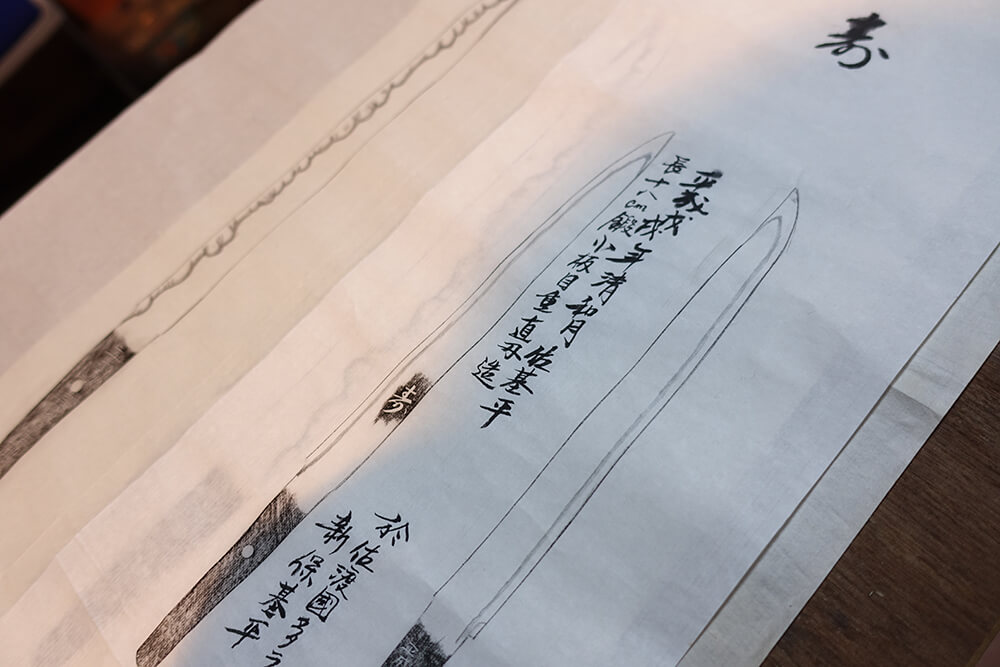 寿
平成戊戌年清和月 基平
長十八cm鍛小板目 直刃造
寿
於佐渡國
新保基平